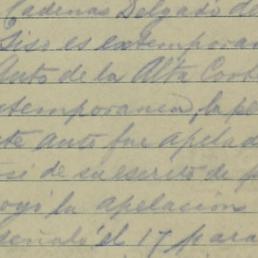 Cadenas Delgado de
Siso es extemporan
Auto de la Alta Corte
xtemporanea, la pe
te auto fue apelad
así de su escrito de p
oyó la apelación
señaló el 17 para